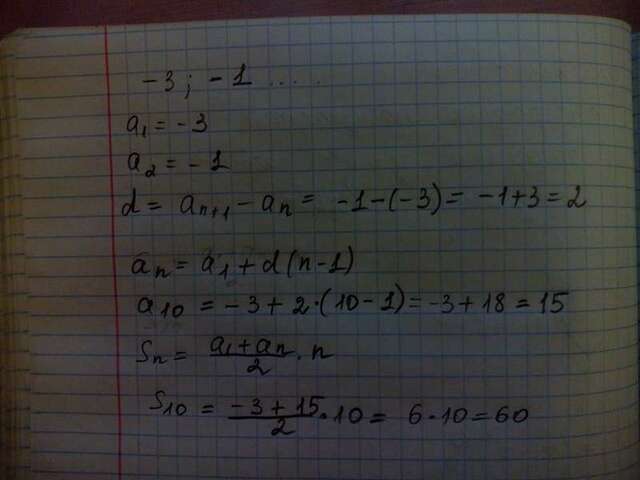 -3; -1 ....
a₁ = -3
a₂ = -1
d = aₙ₊₁ - aₙ = -1-(-3) = -1+3 = 2
aₙ = a₁ + d(n-1)
a₁₀ = -3 + 2·(10-1) = -3+18 = 15
Sₙ = (a₁+aₙ)/2 · n
S₁₀ = (-3+15)/2 · 10 = 6·10 = 60